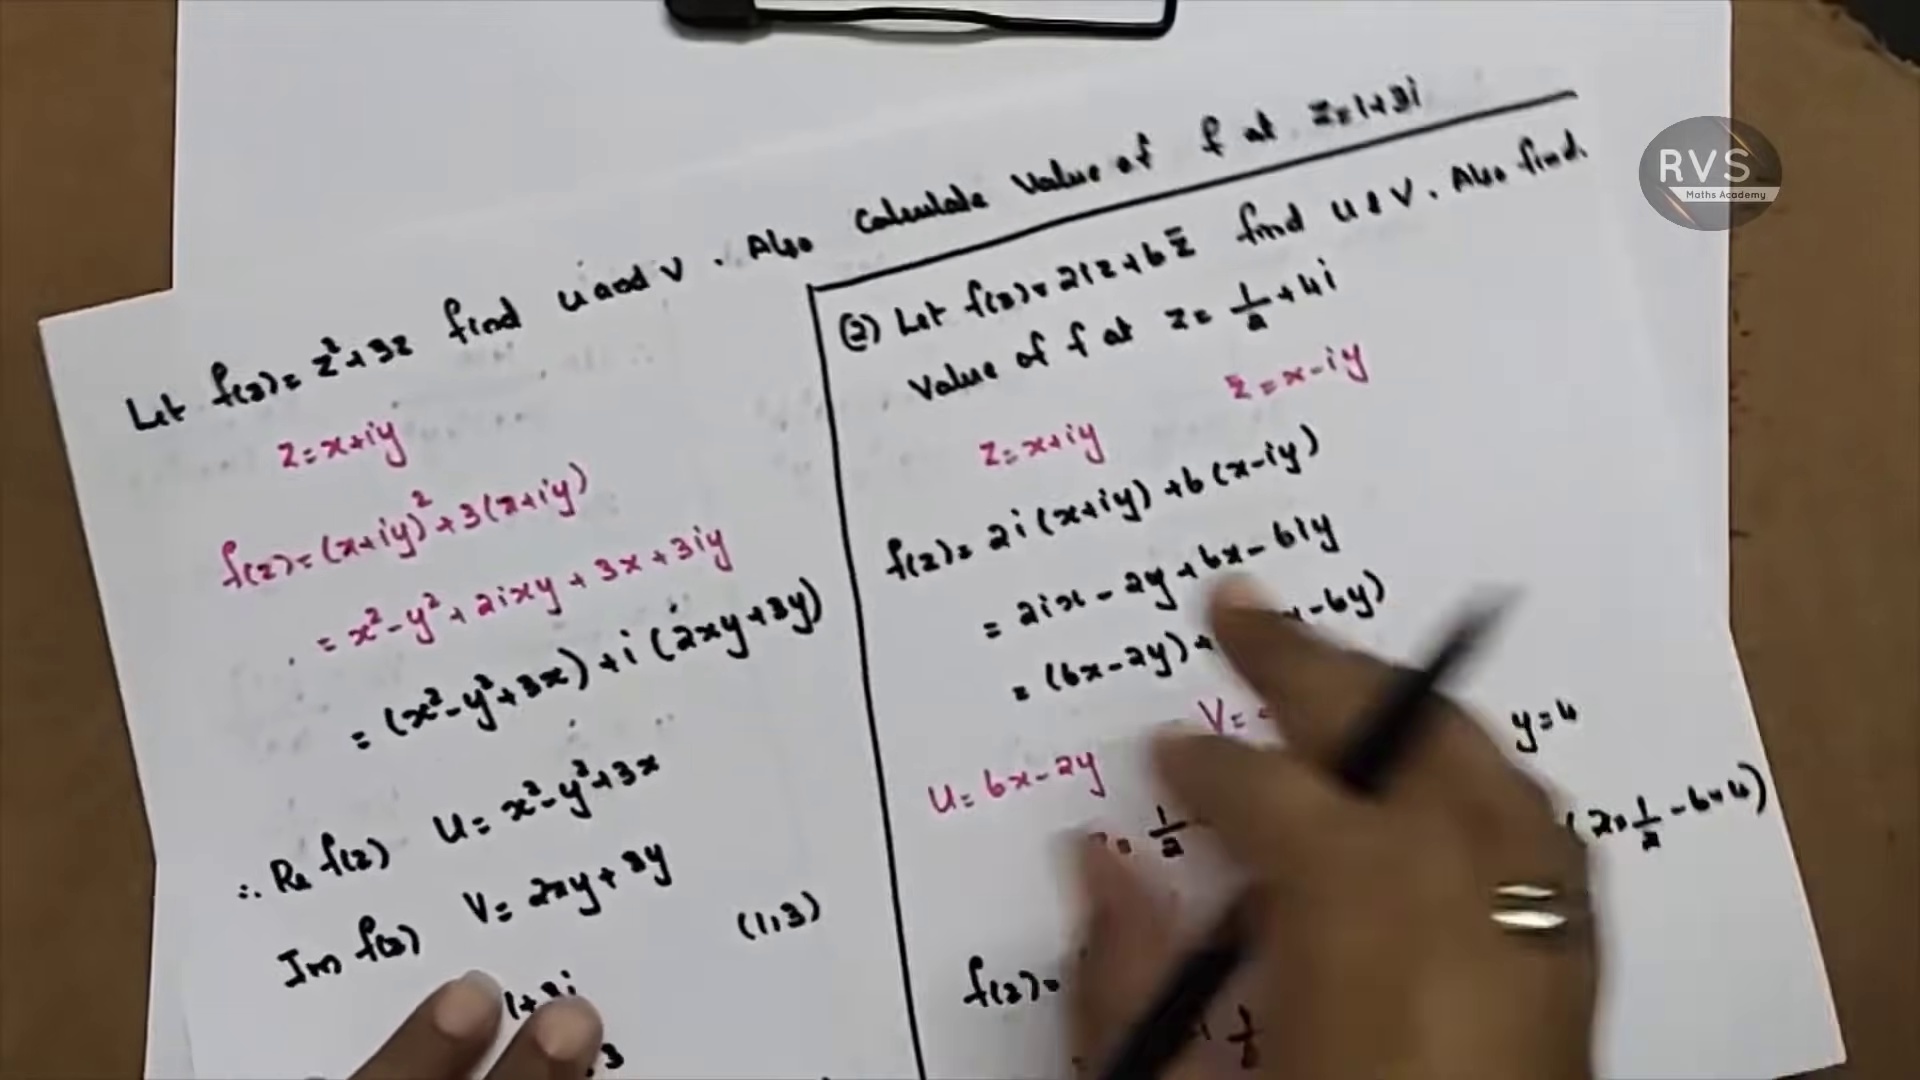 Let f(z) = z²+3z find u and v. Also Calculate Value of f at z=1+3i
z=x+iy
f(z)=(x+iy)²+3(x+iy)
= x²-y²+2ixy+3x+3iy
= (x²-y²+3x)+i(2xy+3y)
∴ Re f(z) U= x²-y²+3x
Im f(z) V= 2xy+3y
(1,3)
1+3i
3
(2) Let f(z)= 2iz+6z̄ find u & v. Also find.
Value of f at z= 1/2+4i
z=x+iy z̄=x-iy
f(z)= 2i(x+iy)+6(x-iy)
= 2ix-2y+6x-6iy
= (6x-2y)+ -6y)
U= 6x-2y V=
1/2 y=4
(2×1/2-6×4)
f(z)=
RVS
Maths Academy